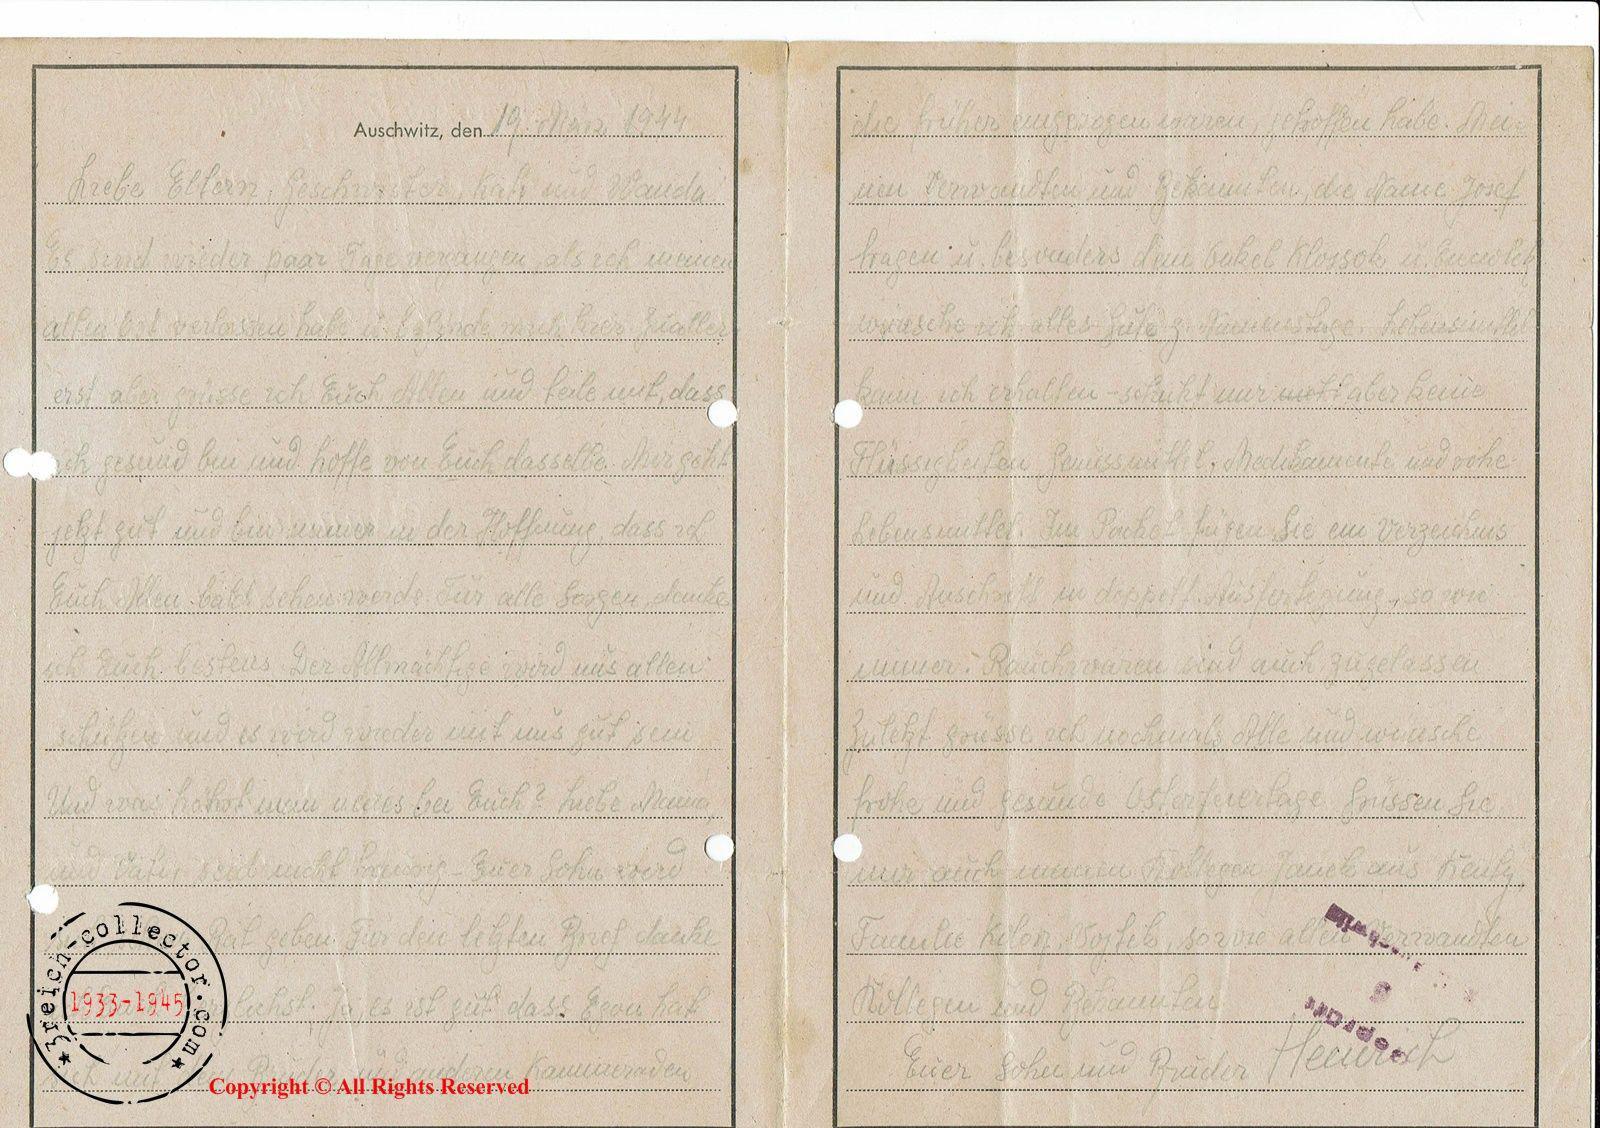 Auschwitz, den 19. März 1944
Liebe Eltern, Geschwister, Kati und Wanda!
Es sind wieder paar Tage vergangen, als ich meinen
alten Ort verlassen habe u. befinde mich hier. Zualler-
erst aber grüsse ich Euch Allen und teile mit, dass
ich gesund bin und hoffe von Euch dasselbe. Mir geht
jetzt gut und bin immer in der Hoffnung, dass ich
Euch Allen bald sehen werde. Für alle Sorgen, danke
ich Euch bestens. Der Allmächtige wird uns allen
schützen und es wird wieder mit uns gut sein
Und was hört man neues bei Euch? Liebe Mama,
und Vater, seid nicht traurig - Euer Sohn wird
Rat geben. Für den letzten Brief danke
herzlichst. Ja, es ist gut dass Egon hat
mit Bruder und anderen Kameraden
die früher eingezogen waren, getroffen habe. Mei-
nen Verwandten und Bekannten, die Name Josef
tragen u. besonders dem Onkel Klossok u.
wünsche ich alles Gute z. Namenstage. Lebensmittel
kann ich erhalten - schickt mir aber keine
Flüssigkeiten Genussmittel, Medikamente und rohe
Lebensmittel. Im Packet fügen Sie ein Verzeichnis
und Anschrift in doppelt. Ausfertigung, so wie
immer. Rauchwaren sind auch zugelassen
Zuletzt grüsse ich nochmals Alle und wünsche
frohe und gesunde Osterfeiertage. Grüssen Sie
mir auch meinen Kollegen Janek aus Kenty,
Familie sowie allen Verwandten
Kollegen und Bekannten
Euer Sohn und Bruder Heinrich
3reich-collector.com
1933-1945
Copyright © All Rights Reserved